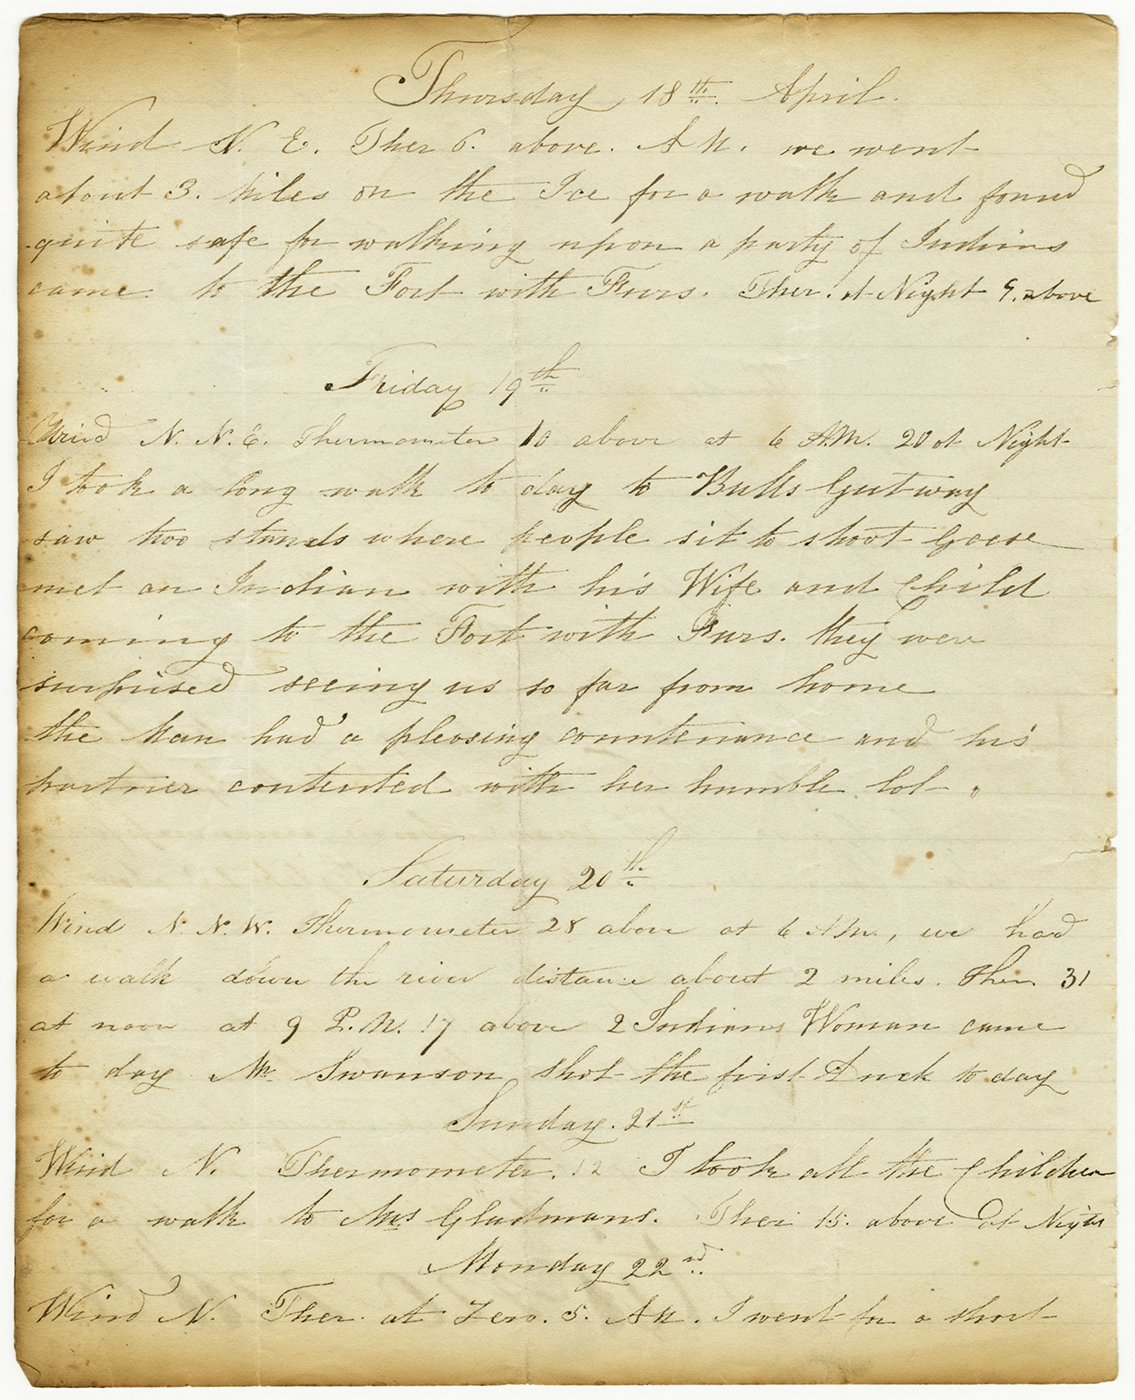 Thursday 18th April.
Wind N. E. Ther 6. above. A M. we went
about 3. Miles on the Ice for a walk and found
quite safe for walking upon a party of Indians
came to the Fort with Furs. Ther. at Night 9. above
Friday 19th
Wind N. N. E. Thermometer 10 above at 6 A.M. 20 at Night
I took a long walk to day to Bulls Gutway
saw two stands where people sit to shoot Geese
met an Indian with his Wife and Child
coming to the Fort with Furs. they were
surprised seeing us so far from home
the Man had a pleasing countenance and his
partner contented with her humble lot.
Saturday 20th
Wind N. N. W. Thermometer 28 above at 6 A.M., we had
a walk down the river distance about 2 miles. Ther. 31
at noon at 9 P.M. 17 above 2 Indians Woman came
to day Mr Swanson shot the first Duck to day
Sunday. 21st
Wind N. Thermometer. 12 I took all the Children
for a walk to Mrs Gladmans. Ther 15. above at Night
Monday 22nd.
Wind N. Ther. at Zero. 5. A M. I went for a short